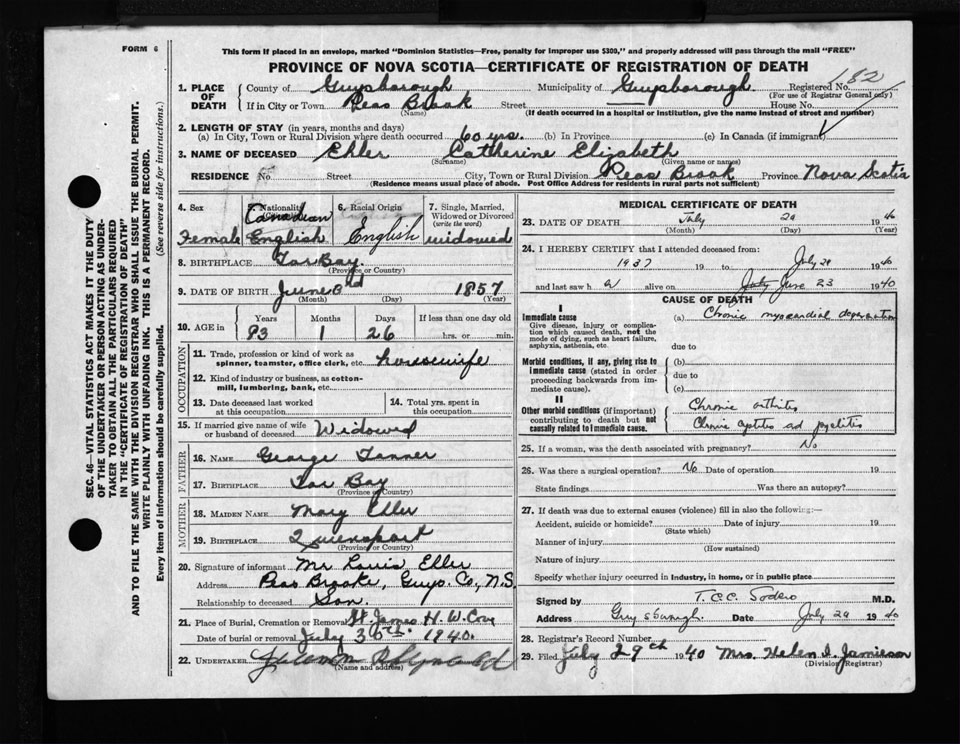 FORM 6
This form if placed in an envelope, marked "Dominion Statistics—Free, penalty for improper use $300," and properly addressed will pass through the mail "FREE"
PROVINCE OF NOVA SCOTIA—CERTIFICATE OF REGISTRATION OF DEATH
SEC. 46—VITAL STATISTICS ACT MAKES IT THE DUTY
OF THE UNDERTAKER OR PERSON ACTING AS UNDER-
TAKER TO OBTAIN ALL THE PARTICULARS REQUIRED
IN THE "CERTIFICATE OF REGISTRATION OF DEATH"
AND TO FILE THE SAME WITH THE DIVISION REGISTRAR WHO SHALL ISSUE THE BURIAL PERMIT.
WRITE PLAINLY WITH UNFADING INK. THIS IS A PERMANENT RECORD.
Every item of information should be carefully supplied. (See reverse side for instructions.)
1. PLACE OF DEATH County of Guysborough Municipality of Guysborough Registered No. 182
(For use of Registrar General only)
If in City or Town Peas Brook Street House No.
(Name) (If death occurred in a hospital or institution, give the name instead of street and number)
2. LENGTH OF STAY (in years, months and days)
(a) In City, Town or Rural Division where death occurred 60 yrs. (b) In Province (c) In Canada (if immigrant)
3. NAME OF DECEASED Ehler Catherine Elizabeth
(Surname) (Given name or names)
RESIDENCE No. Street City, Town or Rural Division Peas Brook Province Nova Scotia
(Residence means usual place of abode. Post Office Address for residents in rural parts not sufficient)
4. Sex Female
5. Nationality Canadian English
6. Racial Origin English
7. Single, Married, Widowed or Divorced (Write the word) widowed
8. BIRTHPLACE Tor Bay
(Province or Country)
9. DATE OF BIRTH June 3rd 1857
(Month) (Day) (Year)
10. AGE in Years Months Days If less than one day old
83 1 26 hrs. or min.
OCCUPATION
11. Trade, profession or kind of work as spinner, teamster, office clerk, etc. housewife
12. Kind of industry or business, as cotton-mill, lumbering, bank, etc.
13. Date deceased last worked at this occupation
14. Total yrs. spent in this occupation
15. If married give name of wife or husband of deceased Widowed
FATHER
16. NAME George Tanner
17. BIRTHPLACE Tor Bay
(Province or Country)
MOTHER
18. MAIDEN NAME Mary Eller
19. BIRTHPLACE Queensport
(Province or Country)
20. Signature of informant Mr Louis Eller
Address Peas Brooke, Guys. Co., N.S.
Relationship to deceased Son.
21. Place of Burial, Cremation or Removal St. James H. W. Cove
Date of burial or removal July 30th. 1940.
22. UNDERTAKER
(Name and address)
MEDICAL CERTIFICATE OF DEATH
23. DATE OF DEATH July 29 1940
(Month) (Day) (Year)
24. I HEREBY CERTIFY that I attended deceased from:
1937 19 to July 29 1940
and last saw h alive on July June 23 1940
CAUSE OF DEATH
I
Immediate cause
Give disease, injury or complication which caused death, not the mode of dying, such as heart failure, asphyxia, asthenia, etc.
(a) Chronic myocardial degeneration
due to
Morbid conditions, if any, giving rise to immediate cause (stated in order proceeding backwards from immediate cause).
(b)
due to
(c)
II
Other morbid conditions (if important) contributing to death but not causally related to immediate cause.
Chronic arthritis
Chronic cystitis ad pyelitis
25. If a woman, was the death associated with pregnancy? No
26. Was there a surgical operation? No Date of operation 19
State findings Was there an autopsy?
27. If death was due to external causes (violence) fill in also the following:—
Accident, suicide or homicide? Date of injury 19
(State which)
Manner of injury
(How sustained)
Nature of injury
Specify whether injury occurred in industry, in home, or in public place
Signed by T.C.C. Sodero M.D.
Address Guysborough. Date July 29 1940
28. Registrar's Record Number
29. Filed July 29th 1940 Mrs. Helen I. Jamieson
(Division Registrar)